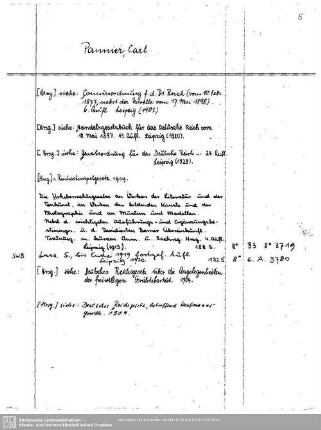 5
Pannier, Carl
[Hrsg.] siehe: Concursordnung f. d. Dt. Reich (vom 10. Febr.
1877, nebst der Novelle vom 17. Mai 1898).
6. Aufl. Leipzig (1901)
[Hrsg.] siehe: Handelsgesetzbuch für das Deutsche Reich vom
10. Mai 1897. 19. Aufl. Leipzig (1920).
[Hrsg.] siehe: Gewerbeordnung für das Deutsche Reich 24. Aufl.
Leipzig (1929).
[Hrsg.] Reichsstempelgesetz 1909.
Die Urheberrechtsgesetze an Werken der Literatur und der
Tonkunst, an Werken der bildenden Künste und der
Photographie und an Mustern und Modellen.
Nebst d. wichtigsten Ausführungs- und Ergänzungsbe-
stimmungen u. d. Revidierten Berner Übereinkunft.
Textausg. m. kurzen Anm. u. Sachreg. Hrsg. 4. Aufl.
Leipzig (1913). 188 S. 8° 93 8° 3719
SWB
Leipzig 1920. 192 S. 8° 6. A. 3780
[Hrsg.] siehe: Deutsches Reichsgesetz über die Angelegenheiten
der freiwilligen Gerichtsbarkeit. 1904.
[Hrsg.] siehe: Reichsgesetz, betreffend Kaufmanns-
gerichte. 1904.